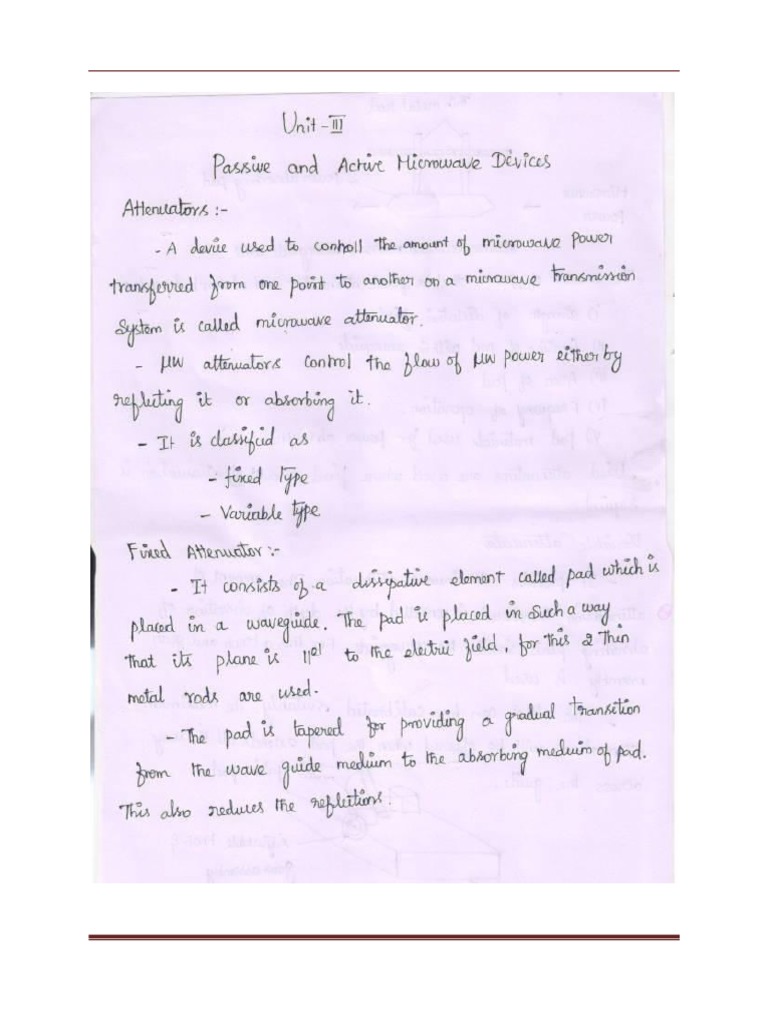 Unit-III
Passive and Active Microwave Devices
Attenuators :-
- A device used to controll the amount of microwave power
transferred from one point to another on a microwave transmission
system is called microwave attenuator.
- μw attenuators control the flow of μw power either by
reflecting it or absorbing it.
- It is classified as
- fixed type
- variable type
Fixed Attenuator :-
- It consists of a dissipative element called pad which is
placed in a waveguide. The pad is placed in such a way
that its plane is 11el to the electric field, for this 2 thin
metal rods are used.
- The pad is tapered for providing a gradual transition
from the wave guide medium to the absorbing medium of pad.
This also reduces the reflections.